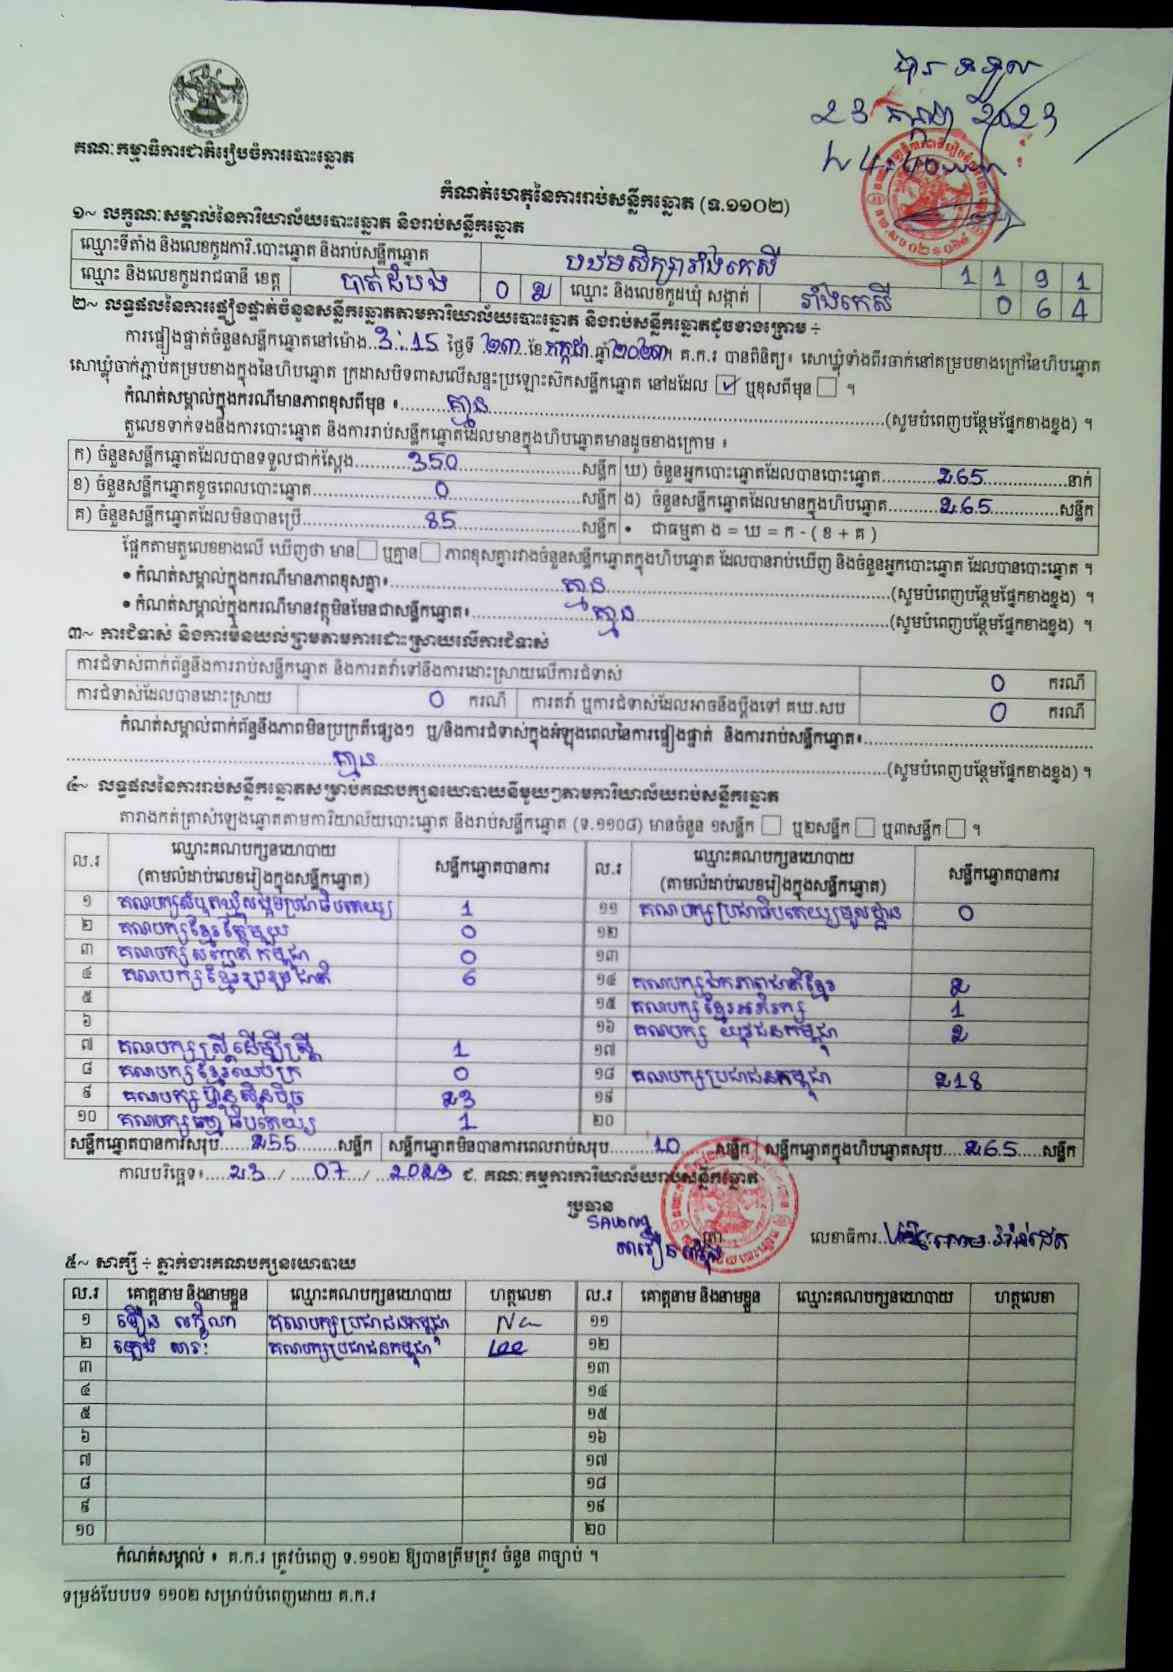 បាន ទទួល
23 កក្កដា 2023
គណៈកម្មាធិការជាតិរៀបចំការបោះឆ្នោត
កំណត់ហេតុនៃការរាប់សន្លឹកឆ្នោត (ទ.១១០២)
១~ លក្ខណៈសម្គាល់នៃការិយាល័យបោះឆ្នោត និងរាប់សន្លឹកឆ្នោត
ឈ្មោះទីតាំង និងលេខកូដការិ.បោះឆ្នោត និងរាប់សន្លឹកឆ្នោត បឋមសិក្សារាំងកេសី 1 1 9 1
ឈ្មោះ និងលេខកូដរាជធានី ខេត្ត បាត់ដំបង 0 2 ឈ្មោះ និងលេខកូដឃុំ សង្កាត់ រាំងកេសី 0 6 4
២~ លទ្ធផលនៃការផ្ទៀងផ្ទាត់ចំនួនសន្លឹកឆ្នោតតាមការិយាល័យបោះឆ្នោត និងរាប់សន្លឹកឆ្នោតដូចខាងក្រោម ÷
ការផ្ទៀងផ្ទាត់ចំនួនសន្លឹកឆ្នោតនៅម៉ោង 3:15 ថ្ងៃទី ២៣ ខែ កក្កដា ឆ្នាំ២០២៣។ គ.ក.រ បានពិនិត្យ៖ សោឃ្លុំទាំងពីរចាក់នៅគម្របខាងក្រៅនៃហិបឆ្នោត
សោឃ្លុំចាក់ភ្ជាប់គម្របខាងក្នុងនៃហិបឆ្នោត ក្រដាសបិទពាសលើសន្ទះប្រឡោះស៊កសន្លឹកឆ្នោត នៅដដែល ☑ ឬខុសពីមុន ☐ ។
កំណត់សម្គាល់ក្នុងករណីមានភាពខុសពីមុន ៖ គ្មាន (សូមបំពេញបន្ថែមផ្នែកខាងខ្នង) ។
តួលេខទាក់ទងនឹងការបោះឆ្នោត និងការរាប់សន្លឹកឆ្នោតដែលមានក្នុងហិបឆ្នោតមានដូចខាងក្រោម ៖
ក) ចំនួនសន្លឹកឆ្នោតដែលបានទទួលជាក់ស្តែង 350 សន្លឹក ឃ) ចំនួនអ្នកបោះឆ្នោតដែលបានបោះឆ្នោត 265 នាក់
ខ) ចំនួនសន្លឹកឆ្នោតខូចពេលបោះឆ្នោត 0 សន្លឹក ង) ចំនួនសន្លឹកឆ្នោតដែលមានក្នុងហិបឆ្នោត 265 សន្លឹក
គ) ចំនួនសន្លឹកឆ្នោតដែលមិនបានប្រើ 85 សន្លឹក • ជាធម្មតា ង = ឃ = ក - ( ខ + គ )
ផ្អែកតាមតួលេខខាងលើ ឃើញថា មាន ☐ ឬគ្មាន ☐ ភាពខុសគ្នារវាងចំនួនសន្លឹកឆ្នោតក្នុងហិបឆ្នោត ដែលបានរាប់ឃើញ និងចំនួនអ្នកបោះឆ្នោត ដែលបានបោះឆ្នោត ។
• កំណត់សម្គាល់ក្នុងករណីមានភាពខុសគ្នា៖ គ្មាន (សូមបំពេញបន្ថែមផ្នែកខាងខ្នង) ។
• កំណត់សម្គាល់ក្នុងករណីមានវត្ថុមិនមែនជាសន្លឹកឆ្នោត៖ គ្មាន (សូមបំពេញបន្ថែមផ្នែកខាងខ្នង) ។
៣~ ការជំទាស់ និងការមិនយល់ព្រមតាមការដោះស្រាយលើការជំទាស់
ការជំទាស់ពាក់ព័ន្ធនឹងការរាប់សន្លឹកឆ្នោត និងការតវ៉ាទៅនឹងការដោះស្រាយលើការជំទាស់ 0 ករណី
ការជំទាស់ដែលបានដោះស្រាយ 0 ករណី ការតវ៉ា ឬការជំទាស់ដែលអាចនឹងប្តឹងទៅ គឃ.សប 0 ករណី
កំណត់សម្គាល់ពាក់ព័ន្ធនឹងភាពមិនប្រក្រតីផ្សេងៗ ឬ/និងការជំទាស់ក្នុងអំឡុងពេលនៃការផ្ទៀងផ្ទាត់ និងការរាប់សន្លឹកឆ្នោត៖
គ្មាន (សូមបំពេញបន្ថែមផ្នែកខាងខ្នង) ។
៤~ លទ្ធផលនៃការរាប់សន្លឹកឆ្នោតសម្រាប់គណបក្សនយោបាយនីមួយៗតាមការិយាល័យរាប់សន្លឹកឆ្នោត
តារាងកត់ត្រាសំឡេងឆ្នោតតាមការិយាល័យបោះឆ្នោត និងរាប់សន្លឹកឆ្នោត (ទ.១១០៨) មានចំនួន ១សន្លឹក ☐ ឬ២សន្លឹក ☐ ឬ៣សន្លឹក ☐ ។
ល.រ ឈ្មោះគណបក្សនយោបាយ (តាមលំដាប់លេខរៀងក្នុងសន្លឹកឆ្នោត) សន្លឹកឆ្នោតបានការ ល.រ ឈ្មោះគណបក្សនយោបាយ (តាមលំដាប់លេខរៀងក្នុងសន្លឹកឆ្នោត) សន្លឹកឆ្នោតបានការ
១ គណបក្សសំបុកឃ្មុំសង្គមប្រជាធិបតេយ្យ 1 ១១ គណបក្សប្រជាធិបតេយ្យមូលដ្ឋាន 0
២ គណបក្សខ្មែរតែមួយ 0 ១២
៣ គណបក្សសញ្ជាតិកម្ពុជា 0 ១៣
៤ គណបក្សខ្មែររួបរួមជាតិ 6 ១៤ គណបក្សឯកភាពជាតិខ្មែរ 2
៥ ១៥ គណបក្សខ្មែរអភិរក្ស 1
៦ ១៦ គណបក្ស យុវជនកម្ពុជា 2
៧ គណបក្សស្ត្រីដើម្បីស្ត្រី 1 ១៧
៨ គណបក្សខ្មែរឈប់ក្រ 0 ១៨ គណបក្សប្រជាជនកម្ពុជា 218
៩ គណបក្សហ៊្វុនស៊ិនប៉ិច 23 ១៩
១០ គណបក្សធម្មាធិបតេយ្យ 1 ២០
សន្លឹកឆ្នោតបានការសរុប 255 សន្លឹក សន្លឹកឆ្នោតមិនបានការពេលរាប់សរុប 10 សន្លឹក សន្លឹកឆ្នោតក្នុងហិបឆ្នោតសរុប 265 សន្លឹក
កាលបរិច្ឆេទ៖ 23 / 07 / 2023 ជ. គណៈកម្មការការិយាល័យរាប់សន្លឹកឆ្នោត
ប្រធាន
លេខាធិការ
៥~ សាក្សី ÷ ភ្នាក់ងារគណបក្សនយោបាយ
ល.រ គោត្តនាម និងនាមខ្លួន ឈ្មោះគណបក្សនយោបាយ ហត្ថលេខា ល.រ គោត្តនាម និងនាមខ្លួន ឈ្មោះគណបក្សនយោបាយ ហត្ថលេខា
១ គណបក្សប្រជាជនកម្ពុជា ១១
២ គណបក្សប្រជាជនកម្ពុជា ១២
៣ ១៣
៤ ១៤
៥ ១៥
៦ ១៦
៧ ១៧
៨ ១៨
៩ ១៩
១០ ២០
កំណត់សម្គាល់ ៖ គ.ក.រ ត្រូវបំពេញ ទ.១១០២ ឱ្យបានត្រឹមត្រូវ ចំនួន ៣ច្បាប់ ។
ទម្រង់បែបបទ ១១០២ សម្រាប់បំពេញដោយ គ.ក.រ